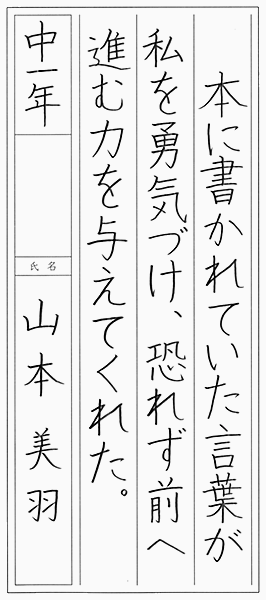 本に書かれていた言葉が
私を勇気づけ、恐れず前へ
進む力を与えてくれた。
中一年
氏名
山本美羽